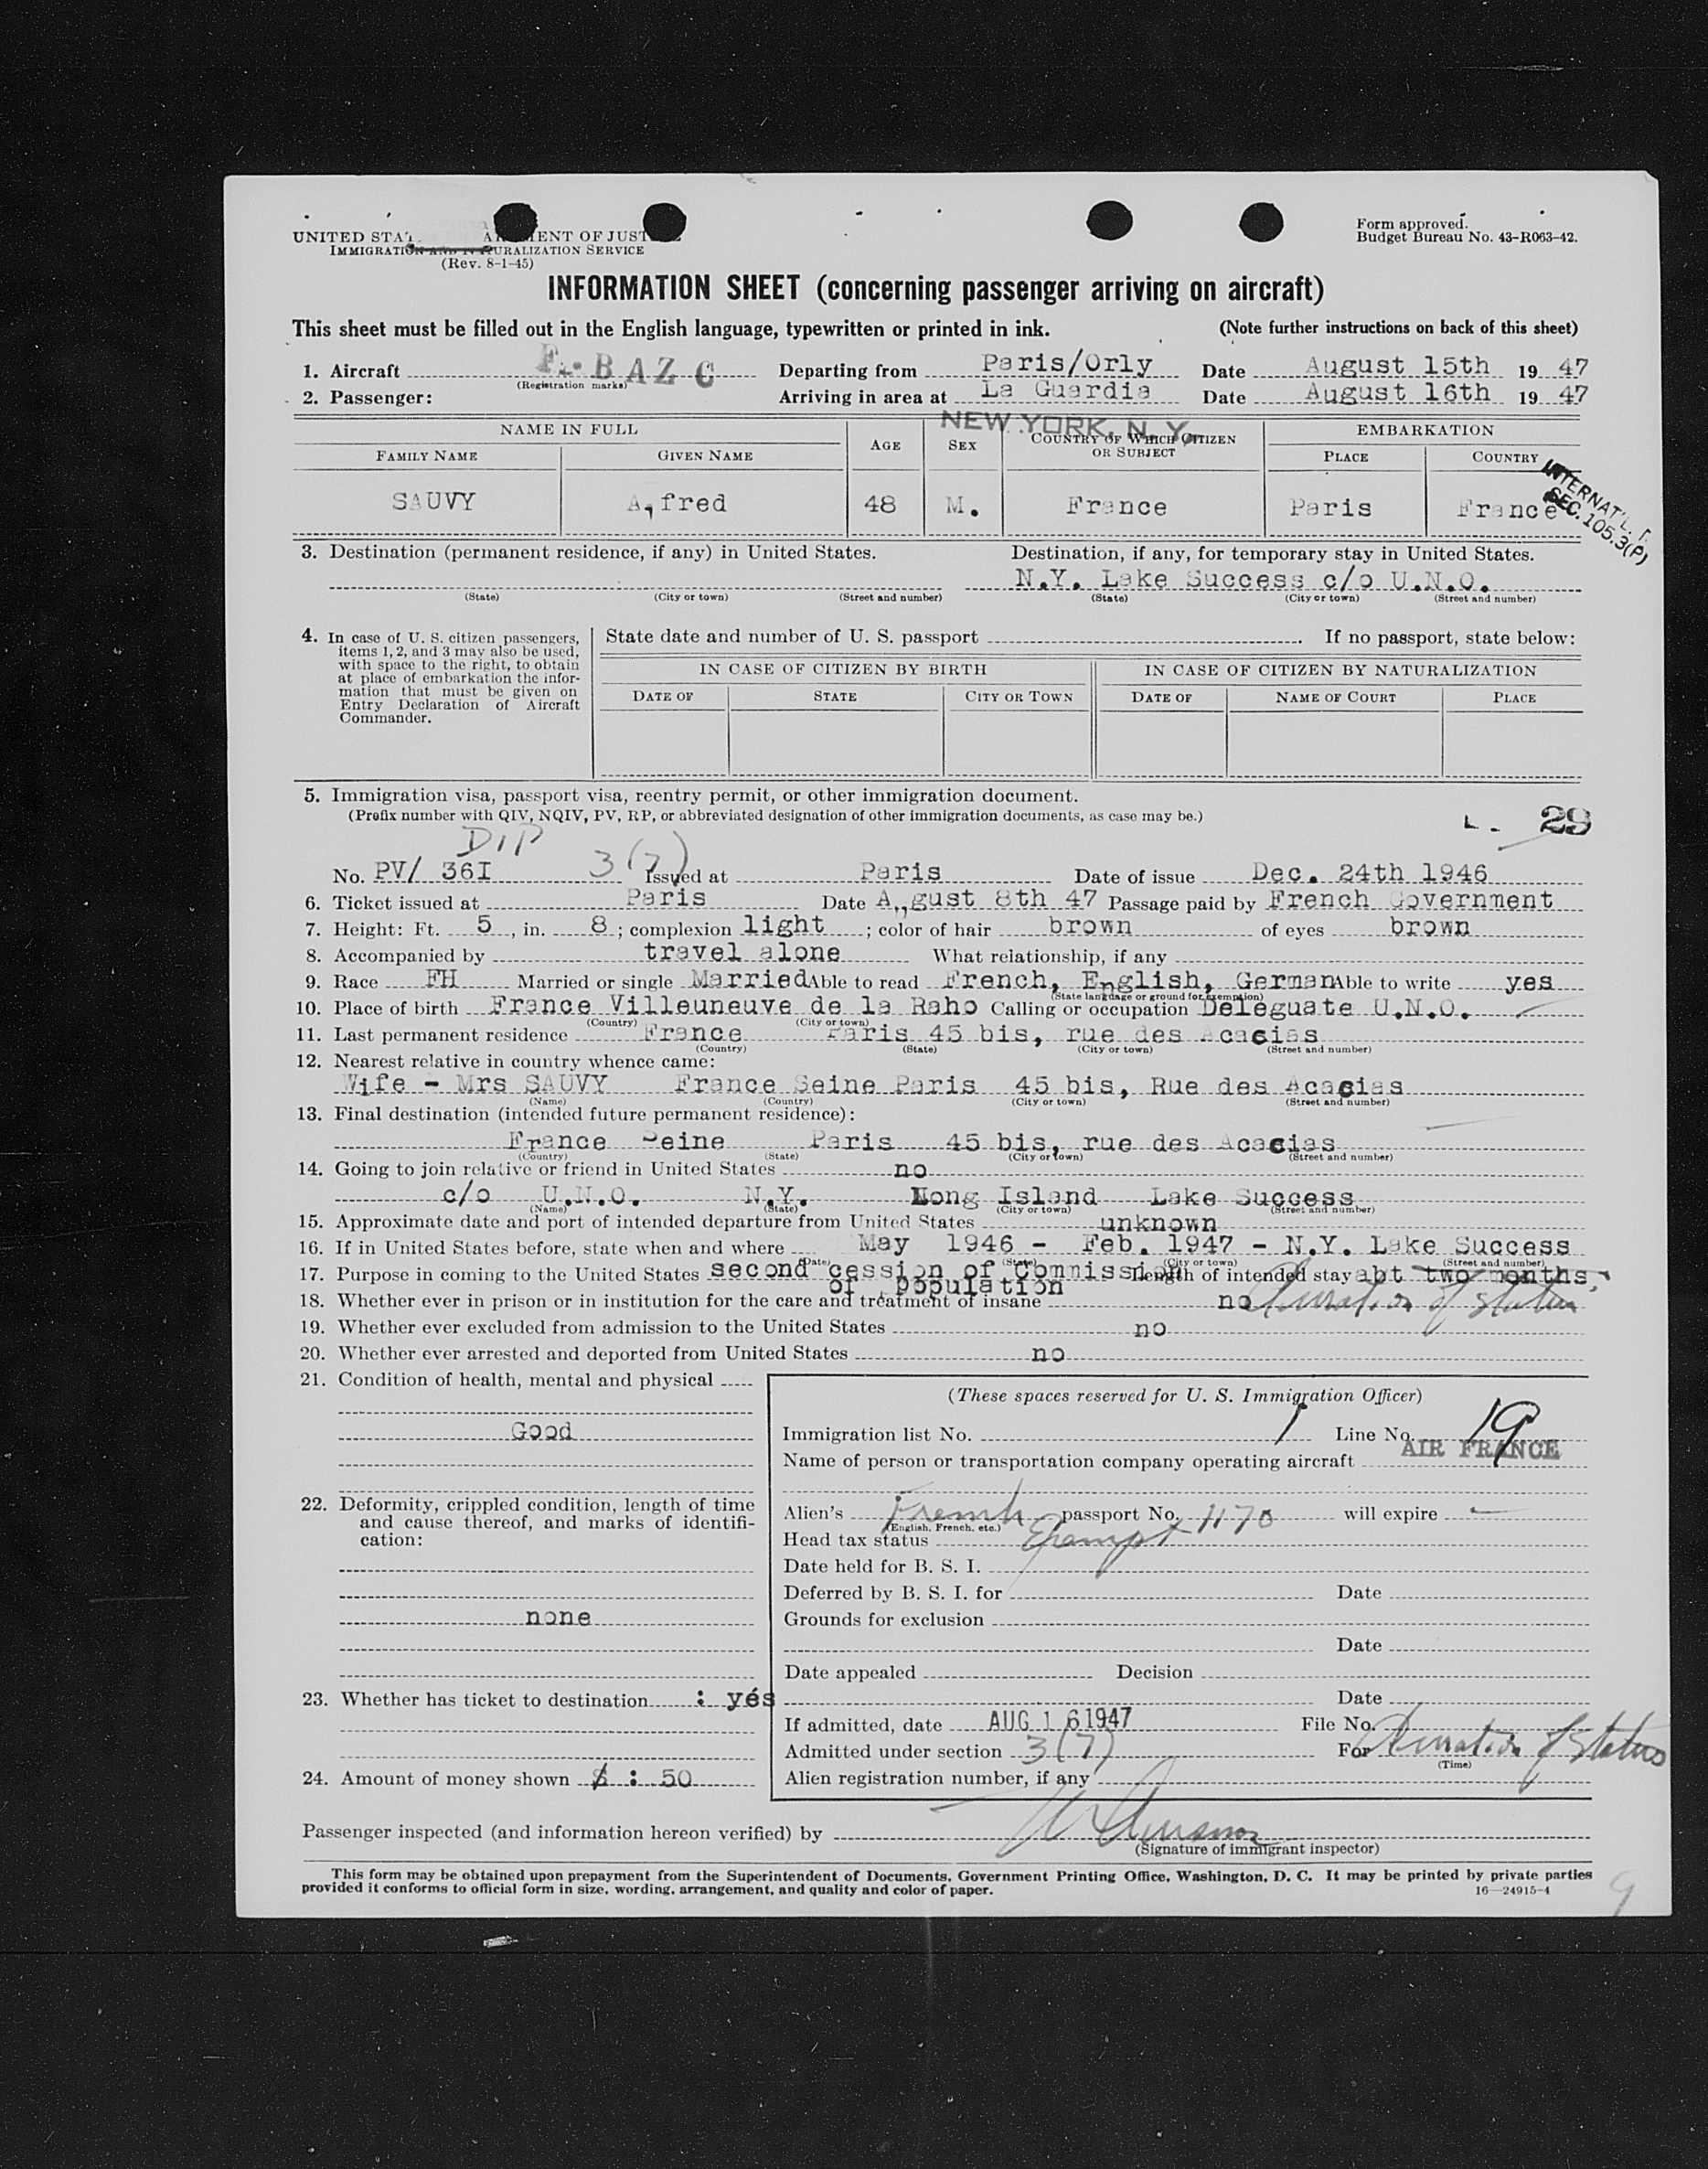 UNITED STATES DEPARTMENT OF JUSTICE
IMMIGRATION AND NATURALIZATION SERVICE
(Rev. 8-1-45)
Form approved.
Budget Bureau No. 43-R063-42.
INFORMATION SHEET (concerning passenger arriving on aircraft)
This sheet must be filled out in the English language, typewritten or printed in ink. (Note further instructions on back of this sheet)
1. Aircraft F.BAZC Departing from Paris/Orly Date August 15th 19 47
(Registration marks)
2. Passenger: Arriving in area at La Guardia Date August 16th 19 47
NEW YORK, N.Y.
NAME IN FULL AGE SEX COUNTRY OF WHICH CITIZEN OR SUBJECT EMBARKATION
FAMILY NAME GIVEN NAME PLACE COUNTRY
SAUVY A,fred 48 M. France Paris France
INTERNAT'L.
SEC. 105.3(P)
3. Destination (permanent residence, if any) in United States. Destination, if any, for temporary stay in United States.
N.Y. Lake Success c/o U.N.O.
(State) (City or town) (Street and number) (State) (City or town) (Street and number)
4. In case of U. S. citizen passengers, items 1, 2, and 3 may also be used, with space to the right, to obtain at place of embarkation the information that must be given on Entry Declaration of Aircraft Commander.
State date and number of U. S. passport . If no passport, state below:
IN CASE OF CITIZEN BY BIRTH IN CASE OF CITIZEN BY NATURALIZATION
DATE OF STATE CITY OR TOWN DATE OF NAME OF COURT PLACE
5. Immigration visa, passport visa, reentry permit, or other immigration document.
(Prefix number with QIV, NQIV, PV, RP, or abbreviated designation of other immigration documents, as case may be.)
L. 29
DIP
No. PV/ 36I 3(7) Issued at Paris Date of issue Dec. 24th 1946
6. Ticket issued at Paris Date A,,gust 8th 47 Passage paid by French Government
7. Height: Ft. 5, in. 8; complexion light; color of hair brown of eyes brown
8. Accompanied by travel alone What relationship, if any
9. Race FH Married or single Married Able to read French, English, German Able to write yes
(State language or ground for exemption)
10. Place of birth France Villeuneuve de la Raho Calling or occupation Deleguate U.N.O.
(Country) (City or town)
11. Last permanent residence France Paris 45 bis, rue des Acacias
(Country) (State) (City or town) (Street and number)
12. Nearest relative in country whence came:
Wife - Mrs SAUVY France Seine Paris 45 bis, Rue des Acacias
(Name) (Country) (City or town) (Street and number)
13. Final destination (intended future permanent residence):
France Seine Paris 45 bis, rue des Acacias
(Country) (State) (City or town) (Street and number)
14. Going to join relative or friend in United States no
c/o U.N.O. N.Y. Long Island Lake Success
(Name) (State) (City or town) (Street and number)
15. Approximate date and port of intended departure from United States unknown
16. If in United States before, state when and where May 1946 - Feb. 1947 - N.Y. Lake Success
(Date) (State) (City or town) (Street and number)
17. Purpose in coming to the United States second cession of Commission Length of intended stay abt two months
of population
18. Whether ever in prison or in institution for the care and treatment of insane no Duration of status
19. Whether ever excluded from admission to the United States no
20. Whether ever arrested and deported from United States no
21. Condition of health, mental and physical
Good
22. Deformity, crippled condition, length of time and cause thereof, and marks of identification:
none
23. Whether has ticket to destination : yés
24. Amount of money shown $ : 50
(These spaces reserved for U. S. Immigration Officer)
Immigration list No. 1 Line No. 19
Name of person or transportation company operating aircraft AIR FRANCE
Alien's French passport No. 1170 will expire -
(English, French, etc.)
Head tax status Exempt
Date held for B. S. I.
Deferred by B. S. I. for Date
Grounds for exclusion
Date
Date appealed Decision
Date
If admitted, date AUG 16 1947 File No.
Admitted under section 3(7) For Duration of Status
(Time)
Alien registration number, if any
Passenger inspected (and information hereon verified) by
(Signature of immigrant inspector)
This form may be obtained upon prepayment from the Superintendent of Documents, Government Printing Office, Washington, D. C. It may be printed by private parties
provided it conforms to official form in size, wording, arrangement, and quality and color of paper. 16—24915-4
9